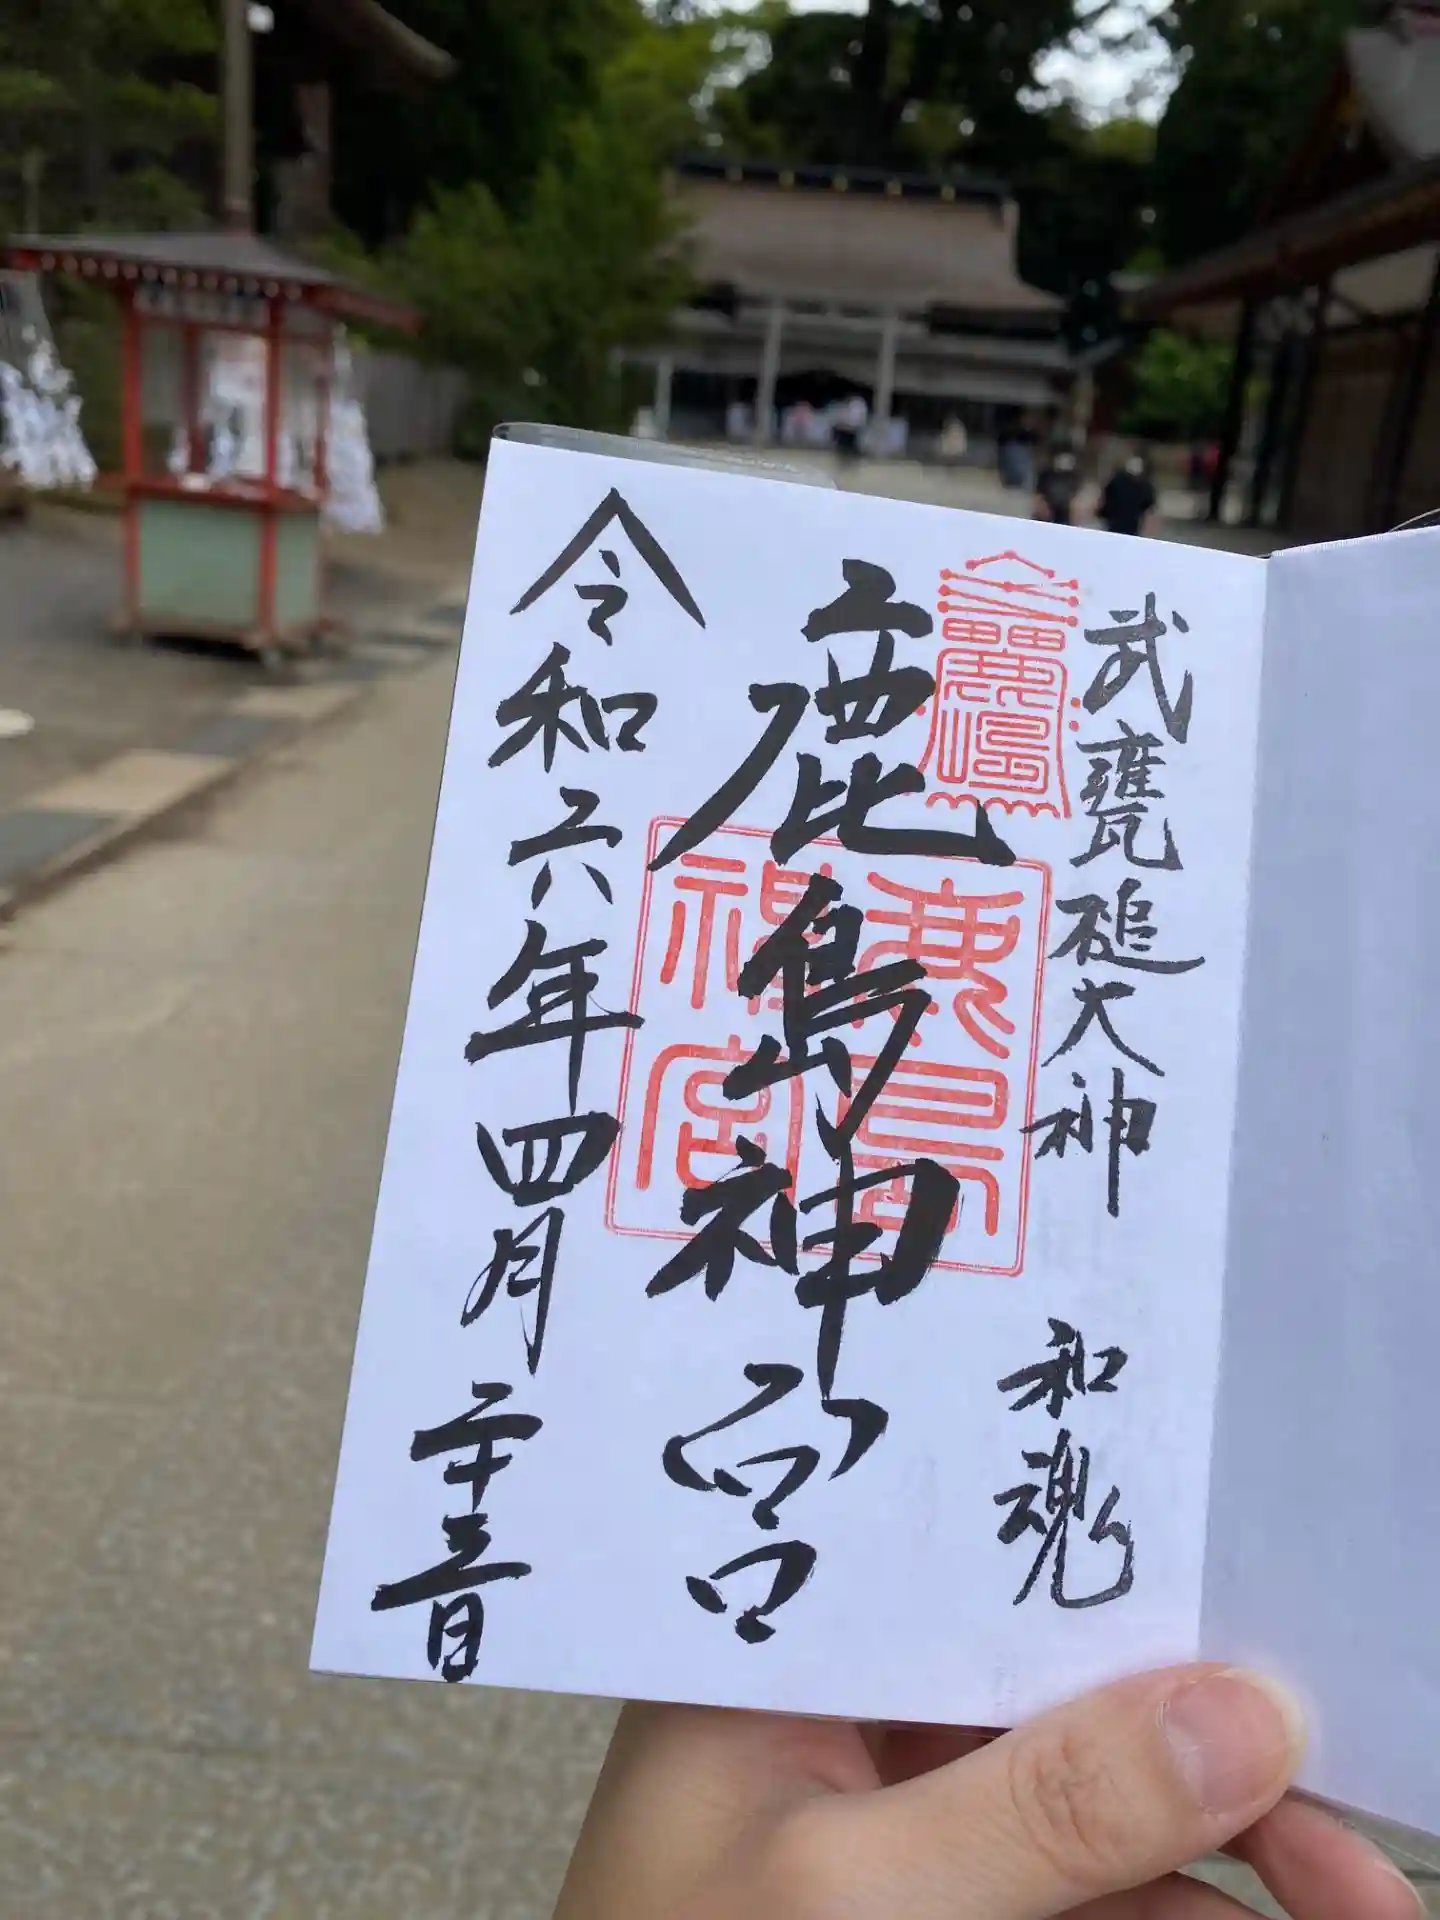 武甕槌大神 和魂
鹿島神宮
鹿島神宮
令和六年四月二十三日